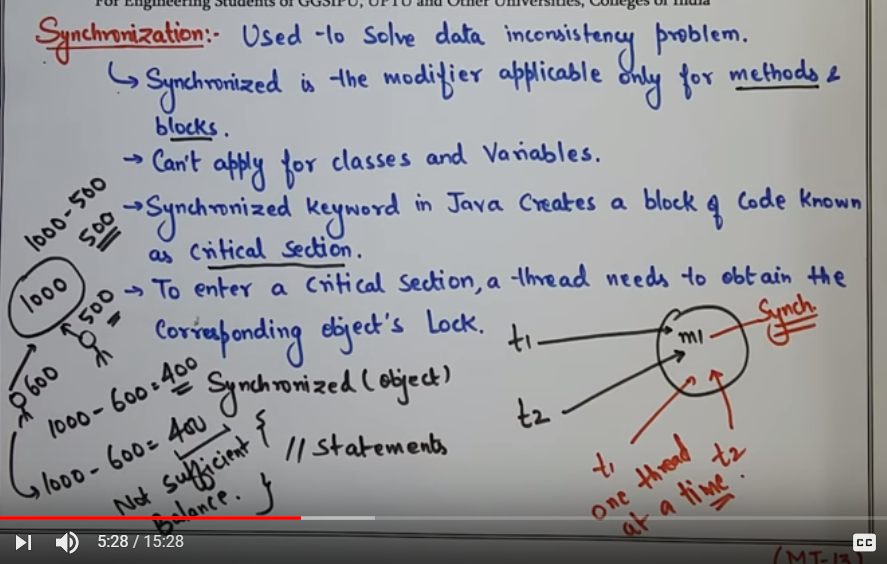 For Engineering Students of GGSIPU, UPTU and Other Universities, Colleges of India
Synchronization:- Used to Solve data inconsistency problem.
↳ Synchronized is the modifier applicable only for methods &
blocks.
→ Can't apply for classes and Variables.
→ Synchronized keyword in Java Creates a block of Code known
as Critical Section.
→ To enter a Critical Section, a thread needs to obtain the
Corresponding object's Lock.
1000-500
500
1000
500
600
1000-600=400
1000-600=400
Not Sufficient
Balance.
Synchronized (object)
{
// Statements
}
t1
t2
m1
Synch.
t1
t2
one thread
at a time.
5:28 / 15:28
CC
(MT-13)